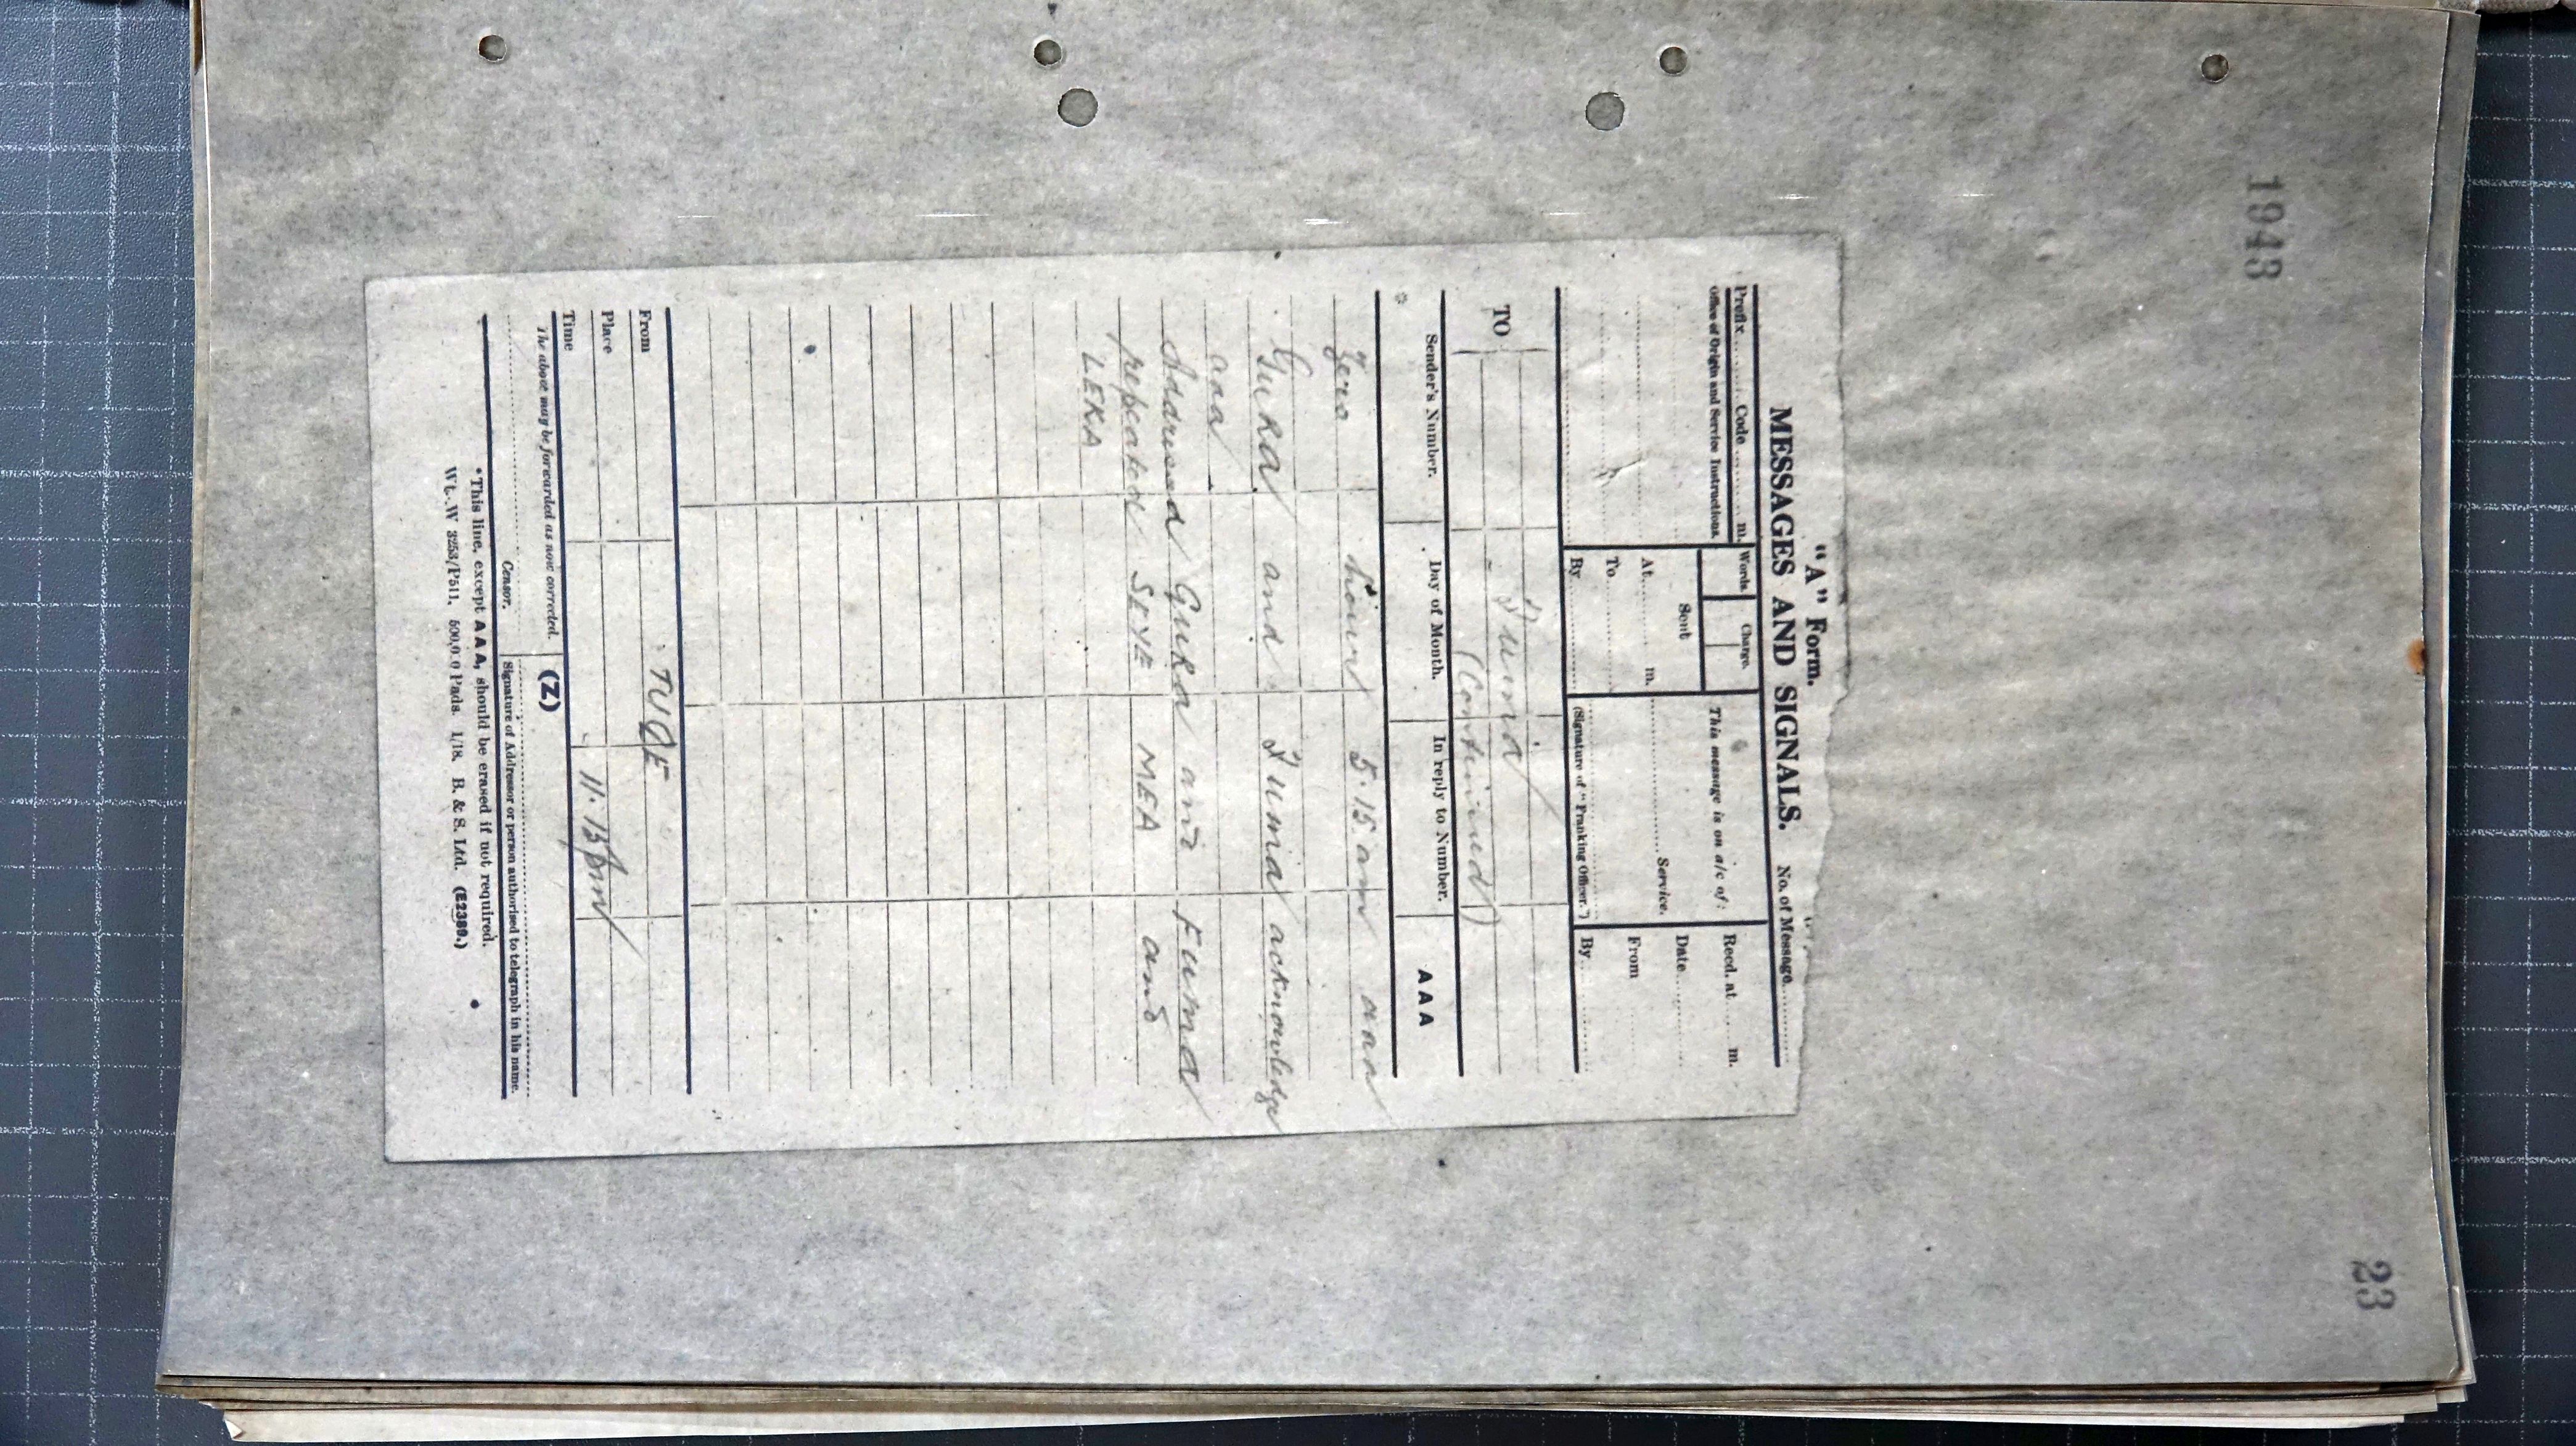 1943
23
"A" Form.
MESSAGES AND SIGNALS. No. of Message
Prefix Code m. Words Charge. This message is on a/c of: Recd. at m.
Office of Origin and Service Instructions. Sent Date
At m. Service. From
To
By (Signature of "Franking Officer.") By
TO
(Continued)
Sender's Number. Day of Month. In reply to Number. AAA
*
Zero hour 5.15 am aaa
GuRa and Fuma acknowledge
aaa
Addressed GuRa and Fuma
repeated SEYE MEA and
LEKA
From TUQE
Place
Time 11.15pm
The above may be forwarded as now corrected. (Z)
Censor. Signature of Addressor or person authorised to telegraph in his name.
*This line, except AAA, should be erased if not required.
Wt. W 3253/P511. 500,000 Pads. 1/18. B. & S. Ltd. (E2389.)